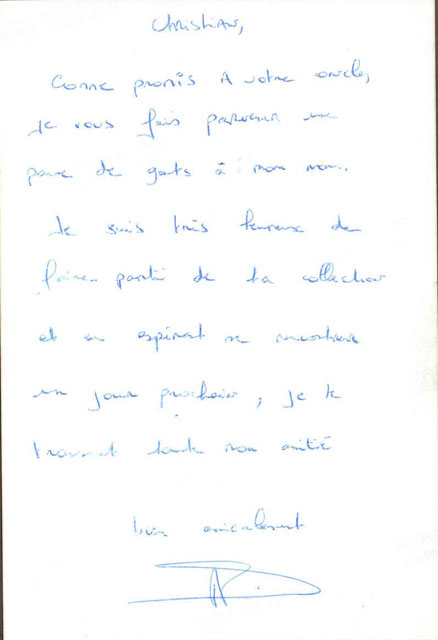 Christian,
Comme promis à votre oncle,
je vous fais parvenir une
paire de gants à mon nom.
Je suis très heureux de
faire partie de ta collection
et en espérant se rencontrer
un jour prochain, je te
transmet toute mon amitié
bien amicalement